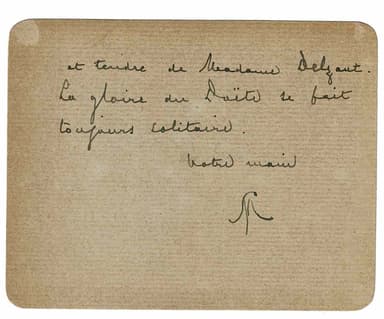 et tendre de Madame Delzant.
La gloire du Poëte se fait
toujours solitaire.
Votre main
SM